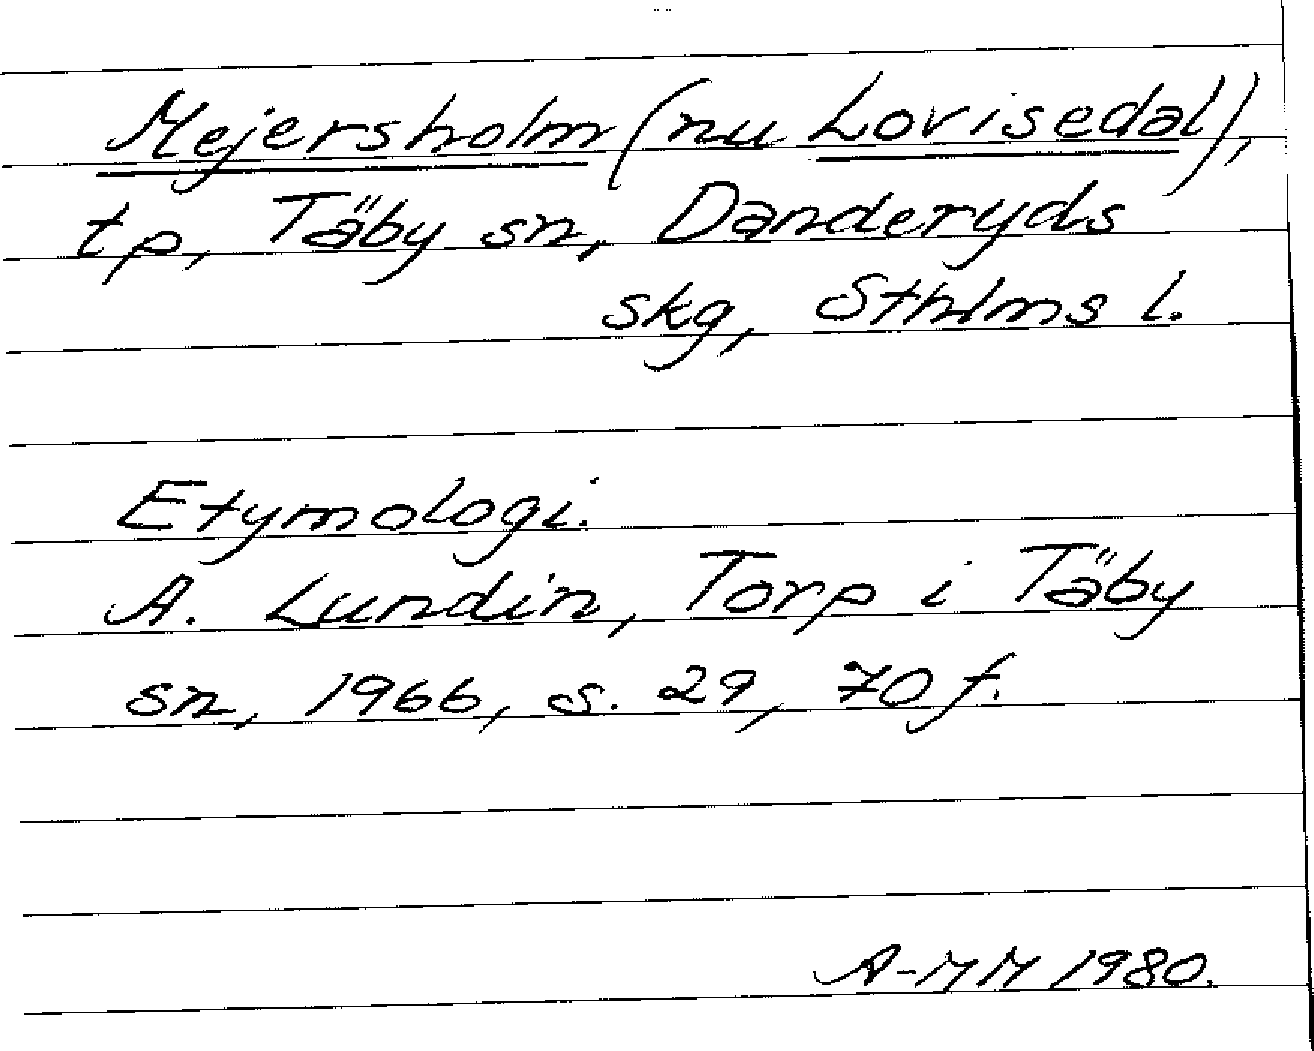 Mejersholm (nu Lovisedal),
tp, Täby sn, Danderyds
skg, Sthlms l.
Etymologi.
A. Lundin, Torp i Täby
sn, 1966, s. 29, 70 f.
A-MM 1980.